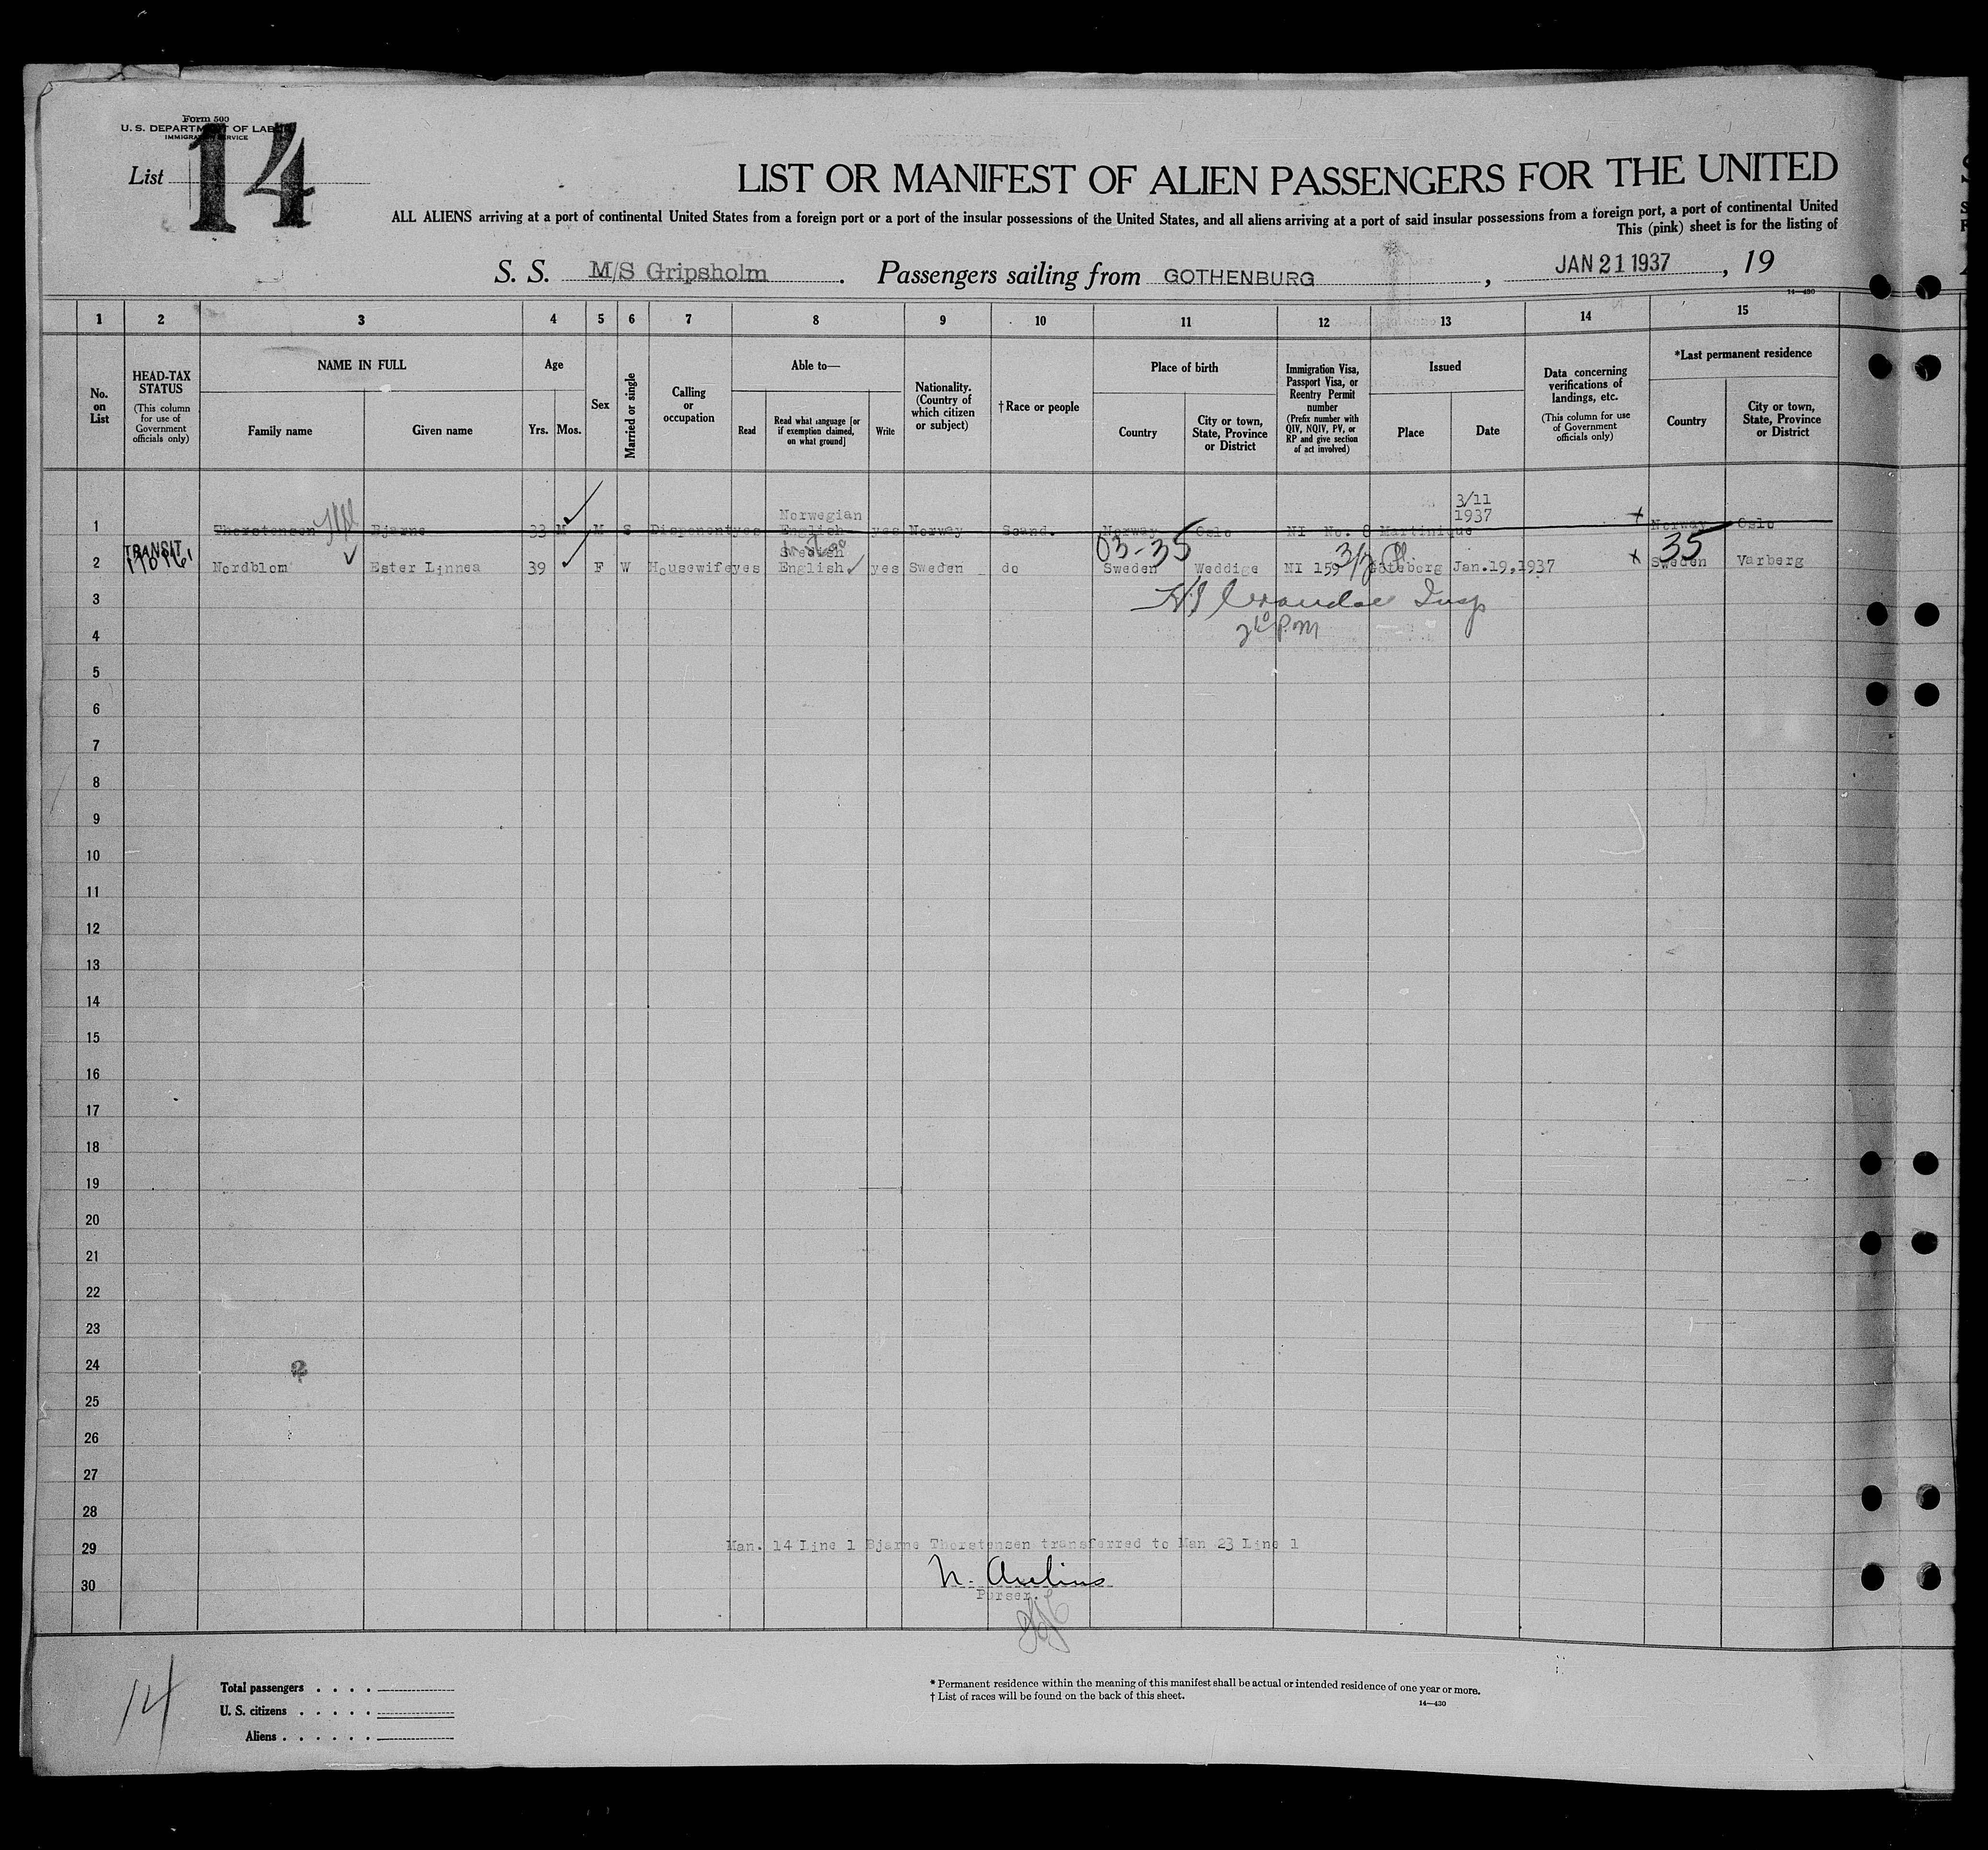 Form 500
U. S. DEPARTMENT OF LABOR
IMMIGRATION SERVICE
List 14
LIST OR MANIFEST OF ALIEN PASSENGERS FOR THE UNITED
ALL ALIENS arriving at a port of continental United States from a foreign port or a port of the insular possessions of the United States, and all aliens arriving at a port of said insular possessions from a foreign port, a port of continental United
This (pink) sheet is for the listing of
S. S. M/S Gripsholm. Passengers sailing from GOTHENBURG, JAN 21 1937, 19
14—430
1 2 3 4 5 6 7 8 9 10 11 12 13 14 15
No. on List
HEAD-TAX STATUS (This column for use of Government officials only)
NAME IN FULL
Family name
Given name
Age
Yrs.
Mos.
Sex
Married or single
Calling or occupation
Able to—
Read
Read what language [or if exemption claimed, on what ground]
Write
Nationality. (Country of which citizen or subject)
†Race or people
Place of birth
Country
City or town, State, Province or District
Immigration Visa, Passport Visa, or Reentry Permit number (Prefix number with QIV, NQIV, PV, or RP and give section of act involved)
Issued
Place
Date
Data concerning verifications of landings, etc. (This column for use of Government officials only)
*Last permanent residence
Country
City or town, State, Province or District
1 Thorstensen Bjarne 33 M M S Disponent yes Norwegian English yes Norway Scand. Norway Oslo NI No. 8 Martinique 3/11 1937 x Norway Oslo
TRANSIT
03-35 35
2 Nordblom Ester Linnea 39 F W Housewife yes Swedish English yes Sweden do Sweden Weddige NI 159 Göteborg Jan.19,1937 x Sweden Varberg
3
4 P.M
5
6
7
8
9
10
11
12
13
14
15
16
17
18
19
20
21
22
23
24 2
25
26
27
28
29 Man. 14 Line 1 Bjarne Thorstensen transferred to Man 23 Line 1
30
Purser.
14
Total passengers
U. S. citizens
Aliens
* Permanent residence within the meaning of this manifest shall be actual or intended residence of one year or more.
† List of races will be found on the back of this sheet.
14—430